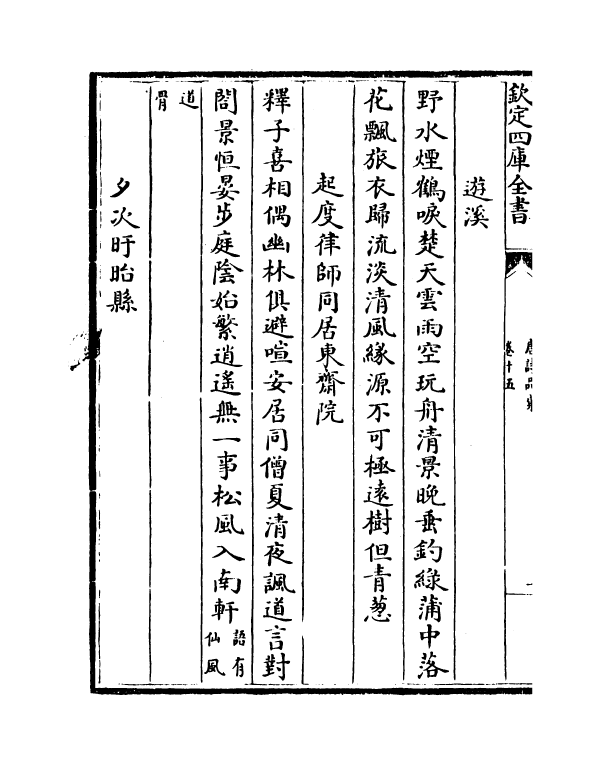 欽定四庫全書
卷十五
遊溪
野水煙鶴唳楚天雲雨空玩舟清景晚垂釣綠蒲中落
花飄旅衣歸流淡清風緣源不可極遠樹但青蔥
起度律師同居東齋院
釋子喜相偶幽林俱避喧安居同僧夏清夜諷道言對
閤景恒晏步庭陰始繁逍遙無一事松風入南軒語有
仙風
道
骨
夕次盱眙縣